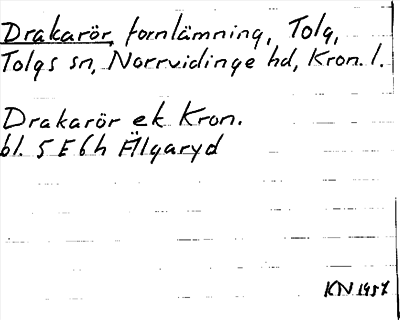 Drakarör, fornlämning, Tolg,
Tolgs sn, Norrvidinge hd, Kron. l.
Drakarör ek Kron.
bl. 5 E 6h Älgaryd
KN 1957